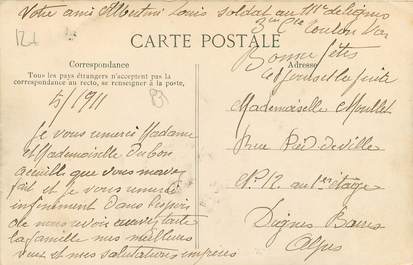 Votre ami Albertini Louis soldat au 111e de ligne
3me Cie Toulon Var
CARTE POSTALE
Correspondance
Tous les pays étrangers n'acceptent pas la
correspondance au recto, se renseigner à la poste,
Adresse
Bonne fêtes
5/1911
Mademoiselle Moullet
Rue Pied de ville
No 12 au 1er étage
Dignes Basses
Alpes
Je vous remerci Madame
et Mademoiselle du bon
acceuille que vous mavez
fait et je vous remerci
infiniment dans l'espoir
de nous revoir avec toute
la famille mes meilleurs
vœux et mes salutations